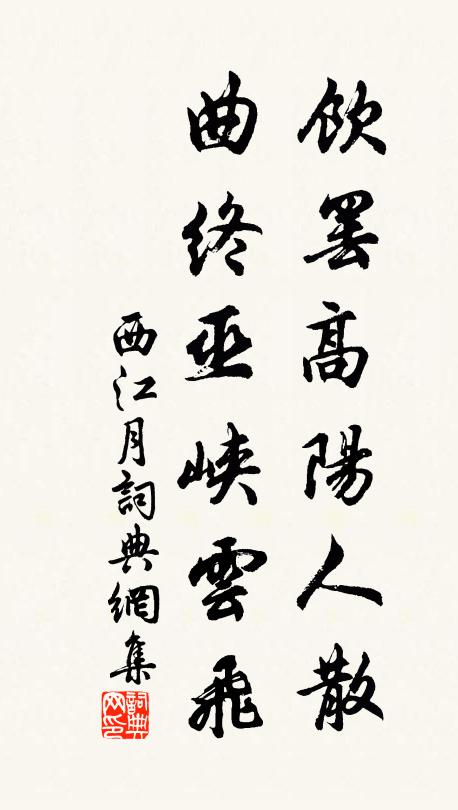 飲罷高陽人散
曲終巫峽雲飛
西江月詞典網集
詞典
网印